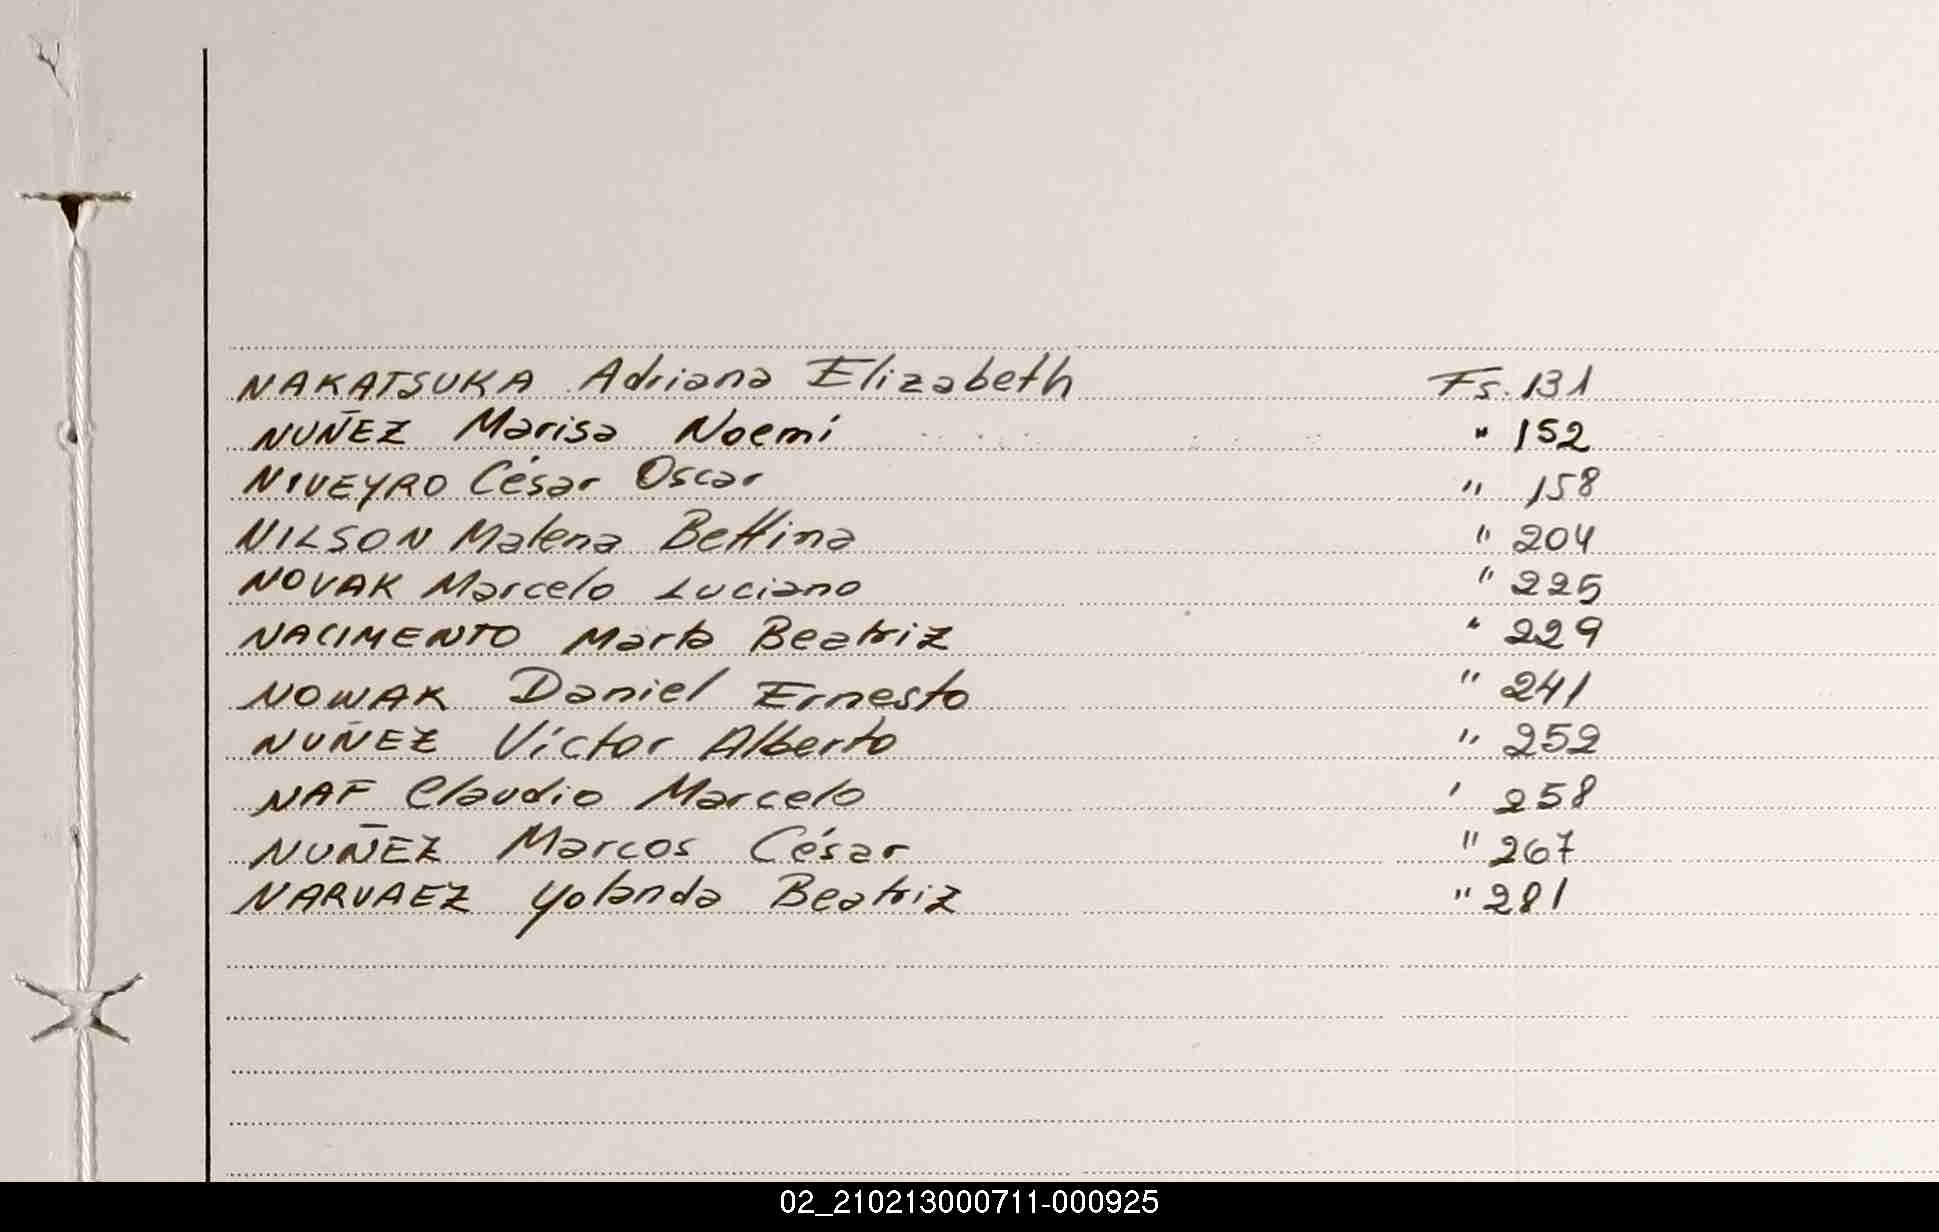 NAKATSUKA Adriana Elizabeth Fs. 131
NUÑEZ Marisa Noemí " 152
NIVEYRO César Oscar " 158
NILSON Malena Bettina " 204
NOVAK Marcelo Luciano " 225
NACIMENTO Marta Beatriz " 229
NOWAK Daniel Ernesto " 241
NUÑEZ Víctor Alberto " 252
NAF Claudio Marcelo ' 258
NUÑEZ Marcos César " 267
NARVAEZ Yolanda Beatriz " 281
02_210213000711-000925